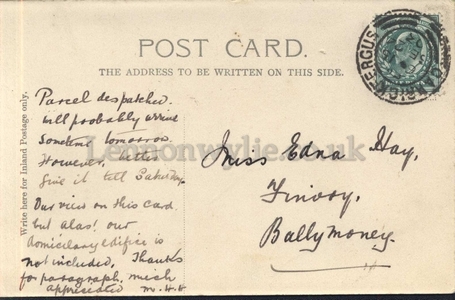 POST CARD.
THE ADDRESS TO BE WRITTEN ON THIS SIDE.
CARRICKFERGUS
Write here for Inland Postage only.
Parcel despatched.
Will probably arrive
tomorrow.
However, better
give it till Saturday.
Our view on this card
but alas! our
domiciliary edifice is
not included, Thanks
for paragraph, much
appreciated M.H.H
Miss Edna Hay,
Finvoy,
Ballymoney.
Lennonwylie.co.uk